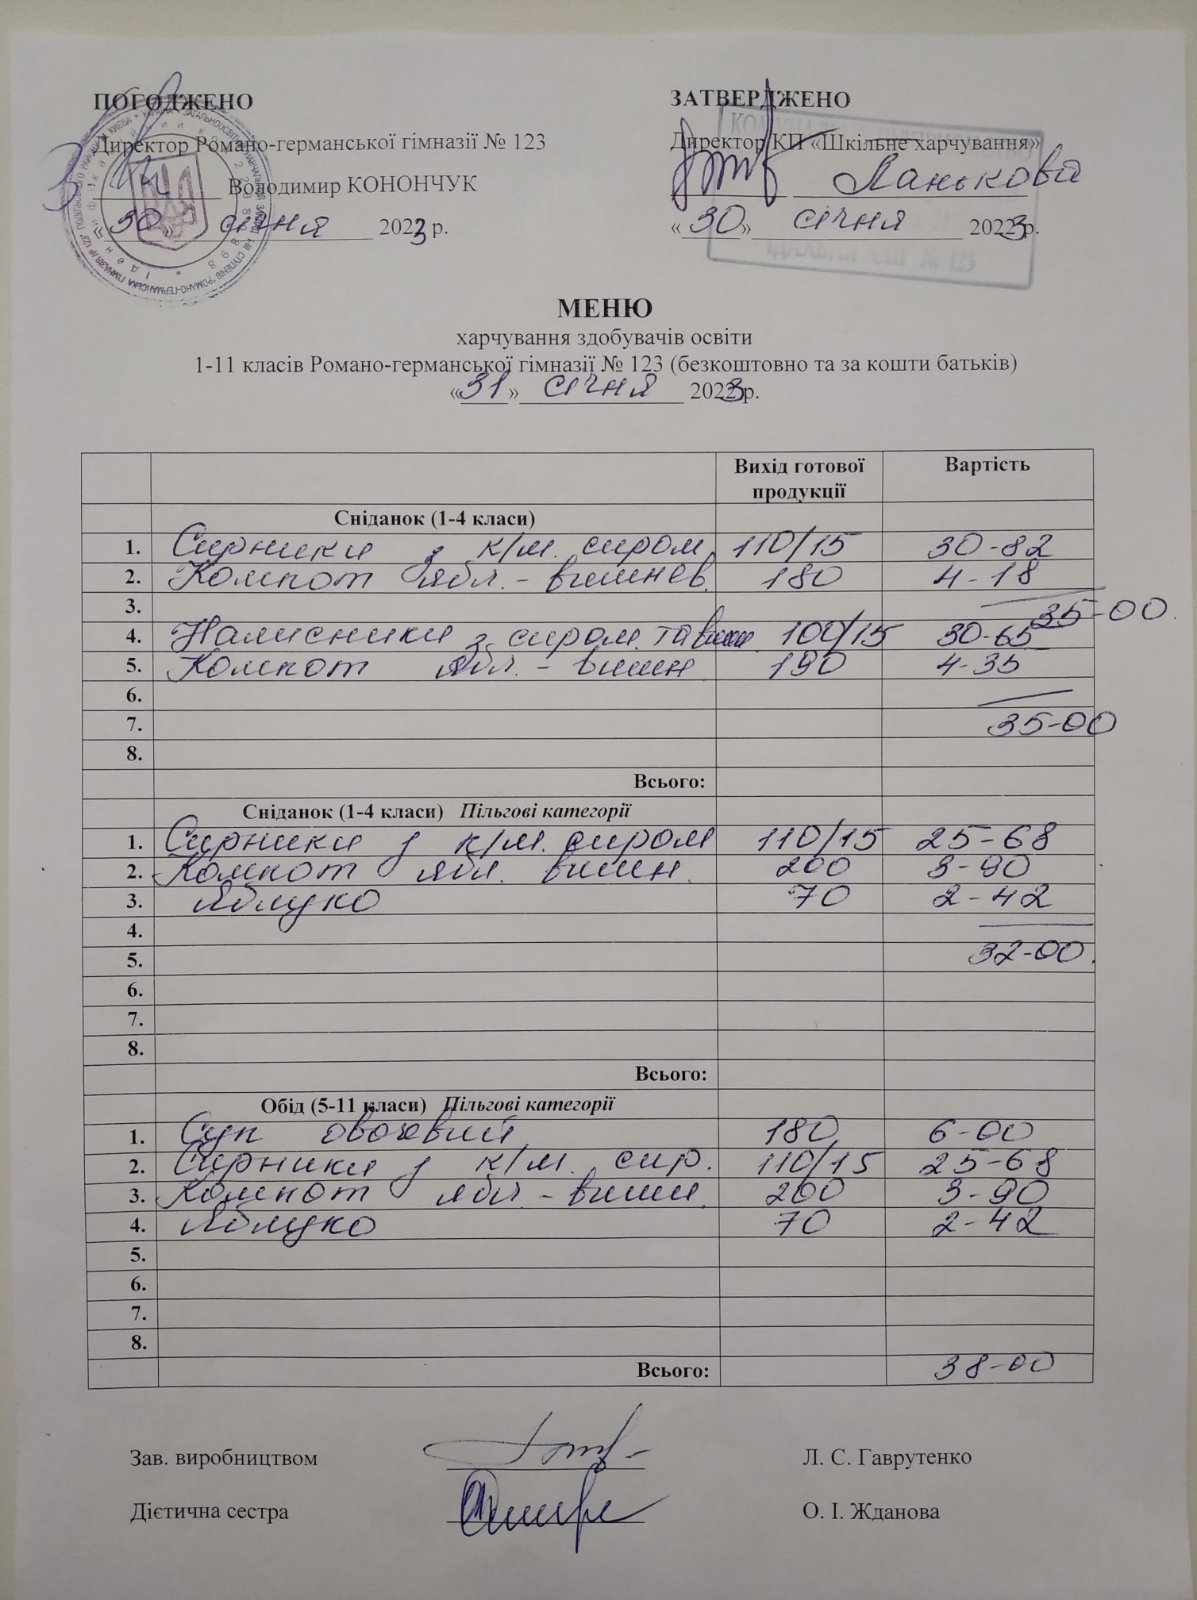 ПОГОДЖЕНО
Директор Романо-германської гімназії № 123
Володимир КОНОНЧУК
«30» січня 2023 р.
ЗАТВЕРДЖЕНО
Директор КП «Шкільне харчування»
Ланькова
«30» січня 2023 р.
ЇДАЛЬНЯ СШ № 123
МЕНЮ
харчування здобувачів освіти
1-11 класів Романо-германської гімназії № 123 (безкоштовно та за кошти батьків)
«31» січня 2023 р.
Вихід готової продукції Вартість
Сніданок (1-4 класи)
1. Сирники з к/м. сиром 110/15 30-82
2. Компот ябл.-вишнев. 180 4-18
3. 35-00
4. Налисники з сиром та 100/15 30-65
5. Компот ябл.-вишн 190 4-35
6.
7. 35-00
8.
Всього:
Сніданок (1-4 класи) Пільгові категорії
1. Сирники з к/м. сиром 110/15 25-68
2. Компот ябл. вишн. 200 3-90
3. Яблуко 70 2-42
4.
5. 32-00.
6.
7.
8.
Всього:
Обід (5-11 класи) Пільгові категорії
1. Суп овочевий 180 6-00
2. Сирники з к/м. сир. 110/15 25-68
3. Компот ябл-вишн. 200 3-90
4. Яблуко 70 2-42
5.
6.
7.
8.
Всього: 38-00
Зав. виробництвом Л. С. Гаврутенко
Дієтична сестра О. І. Жданова